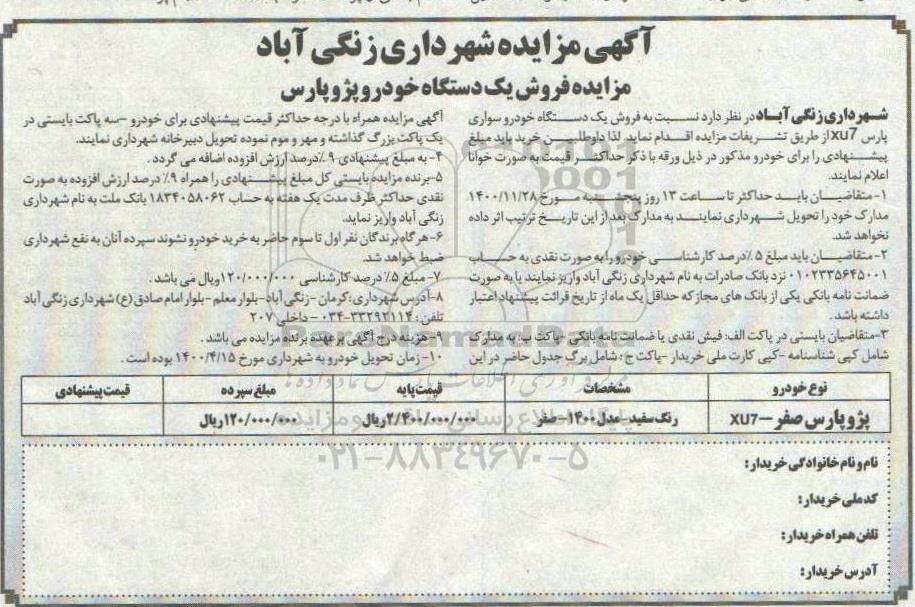 آگهی مزایده شهرداری زنگی آباد
مزایده فروش یک دستگاه خودرو پژو پارس
شهرداری زنگی آباد در نظر دارد نسبت به فروش یک دستگاه خودرو سواری
پارس xu7 از طریق تشریفات مزایده اقدام نماید. لذا داوطلبین خرید باید مبلغ
پیشنهادی را برای خودرو مذکور در ذیل ورقه با ذکر حداکثر قیمت به صورت خوانا
اعلام نمایند.
۱- متقاضیان باید حداکثر تا ساعت ۱۳ روز پنجشنبه مورخ ۱۴۰۰/۱۱/۲۸
مدارک خود را تحویل شهرداری نمایند به مدارک بعد از این تاریخ ترتیب اثر داده
نخواهد شد.
۲- متقاضیان باید مبلغ ۵٪درصد کارشناسی خودرو را به صورت نقدی به حساب
۰۱۰۲۳۳۵۶۴۵۰۰۱ نزد بانک صادرات به نام شهرداری زنگی آباد واریز نمایند یا به صورت
ضمانت نامه بانکی یکی از بانک های مجاز که حداقل یک ماه از تاریخ قرائت پیشنهاد اعتبار
داشته باشد.
۳-متقاضیان بایستی در پاکت الف: فیش نقدی یا ضمانت نامه بانکی -پاکت ب: به مدارک
شامل کپی شناسنامه -کپی کارت ملی خریدار -پاکت ج: شامل برگ جدول حاضر در این
آگهی مزایده همراه با درجه حداکثر قیمت پیشنهادی برای خودرو -سه پاکت بایستی در
یک پاکت بزرگ گذاشته و مهر و موم نموده تحویل دبیرخانه شهرداری نمایند.
۴- به مبلغ پیشنهادی ۹٪درصد ارزش افزوده اضافه می گردد.
۵-برنده مزایده بایستی کل مبلغ پیشنهادی را همراه ۹٪ درصد ارزش افزوده به صورت
نقدی حداکثر ظرف مدت یک هفته به حساب ۱۸۳۴۰۵۸۰۶۲ بانک ملت به نام شهرداری
زنگی آباد واریز نماید.
۶- هر گاه برندگان نفر اول تا سوم حاضر به خرید خودرو نشوند سپرده آنان به نفع شهرداری
ضبط خواهد شد.
۷- مبلغ ۵٪ درصد کارشناسی ۱۲۰/۰۰۰/۰۰۰ریال می باشد.
۸-آدرس شهرداری: کرمان -زنگی آباد-بلوار معلم -بلوار امام صادق(ع) شهرداری زنگی آباد
تلفن: ۳۳۲۹۲۱۱۴-۰۳۴ -داخلی ۲۰۷
۹-هزینه درج آگهی بر عهده برنده مزایده می باشد.
۱۰- زمان تحویل خودرو به شهرداری مورخ ۱۴۰۰/۴/۱۵ بوده است.
نوع خودرو مشخصات قیمت پایه مبلغ سپرده قیمت پیشنهادی
پژو پارس صفر-XU7 رنگ سفید-مدل۱۴۰۰-صفر ۲/۴۰۰/۰۰۰/۰۰۰ریال ۱۲۰/۰۰۰/۰۰۰ریال
نام و نام خانوادگی خریدار:
کد ملی خریدار:
تلفن همراه خریدار:
آدرس خریدار:
ParsNamadData
۰۲۱-۸۸۳۴۹۶۷۰-۵